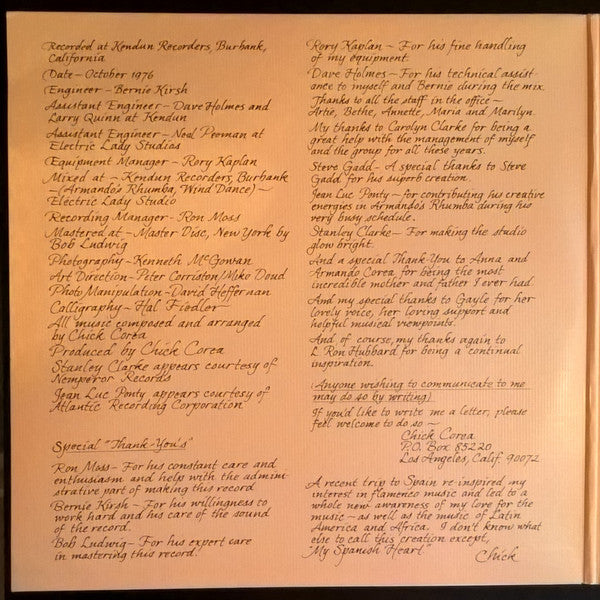 Recorded at Kendun Recorders, Burbank,
California
Date - October 1976
Engineer - Bernie Kirsh
Assistant Engineer - Dave Holmes and
Larry Quinn at Kendun
Assistant Engineer - Neal Peeman at
Electric Lady Studios
Equipment Manager - Rory Kaplan
Mixed at - Kendun Recorders, Burbank
-(Armando's Rhumba, Wind Dance) -
Electric Lady Studio
Recording Manager - Ron Moss
Mastered at - Master Disc, New York by
Bob Ludwig
Photography - Kenneth McGowan
Art Direction - Peter Corriston/Miko Doud
Photo Manipulation - David Heffernan
Calligraphy - Hal Fiedler
All music composed and arranged
by Chick Corea
Produced by Chick Corea
Stanley Clarke appears courtesy of
Nemperor Records
Jean Luc Ponty appears courtesy of
Atlantic Recording Corporation
Special "Thank-You's"
Ron Moss - For his constant care and
enthusiasm and help with the adminis-
trative part of making this record
Bernie Kirsh - For his willingness to
work hard and his care of the sound
of the record.
Bob Ludwig - For his expert care
in mastering this record!
Rory Kaplan - For his fine handling
of my equipment.
Dave Holmes - For his technical assist-
ance to myself and Bernie during the mix.
Thanks to all the staff in the office -
Artie, Bethe, Annette, Maria and Marilyn.
My thanks to Carolyn Clarke for being a
great help with the management of myself
and the group for all these years.
Steve Gadd - A special thanks to Steve
Gadd for his superb creation.
Jean Luc Ponty - for contributing his creative
energies in Armando's Rhumba during his
very busy schedule.
Stanley Clarke - For making the studio
glow bright.
And a special Thank-You to Anna and
Armando Corea for being the most
incredible mother and father I ever had.
And my special thanks to Gayle for her
lovely voice, her loving support and
helpful musical viewpoints.
And of course, my thanks again to
L. Ron Hubbard for being a continual
inspiration.
(Anyone wishing to communicate to me
may do so by writing)
If you'd like to write me a letter, please
feel welcome to do so -
Chick Corea
P.O. Box 85220
Los Angeles, Calif. 90072
A recent trip to Spain re-inspired my
interest in flamenco music and led to a
whole new awareness of my love for the
music - as well as the music of Latin
America and Africa. I don't know what
else to call this creation except,
"My Spanish Heart"
Chick